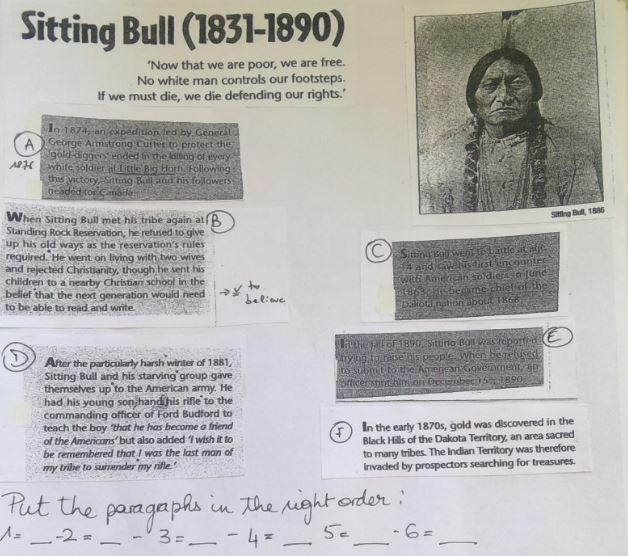 Sitting Bull (1831-1890)
'Now that we are poor, we are free.
No white man controls our footsteps.
If we must die, we die defending our rights.'
Sitting Bull, 1886
A
1876
In 1874, an expedition led by General
George Armstrong Custer to protect the
'gold-diggers' ended in the killing of every
white soldier at Little Big Horn. Following
this victory, Sitting Bull and his followers
headed for Canada.
B
When Sitting Bull met his tribe again at
Standing Rock Reservation, he refused to give
up his old ways as the reservation's rules
required. He went on living with two wives
and rejected Christianity, though he sent his
children to a nearby Christian school in the
belief that the next generation would need
to be able to read and write.
to
believe
C
Sitting Bull went to battle at age
14 and saw his first encounter
with American soldiers in June
1863. He became chief of the
Dakota nation about 1868.
D
After the particularly harsh winter of 1881,
Sitting Bull and his starving group gave
themselves up to the American army. He
had his young son hand his rifle to the
commanding officer of Ford Budford to
teach the boy 'that he has become a friend
of the Americans' but also added 'I wish it to
be remembered that I was the last man of
my tribe to surrender my rifle.'
E
In the fall of 1890, Sitting Bull was reported
trying to raise his people. When he refused
to submit to the American Government, an
officer shot him on December 15th, 1890.
F
In the early 1870s, gold was discovered in the
Black Hills of the Dakota Territory, an area sacred
to many tribes. The Indian Territory was therefore
invaded by prospectors searching for treasures.
Put the paragraphs in the right order :
1= __ -2 = __ - 3= __ - 4 = __ 5= __ - 6= __